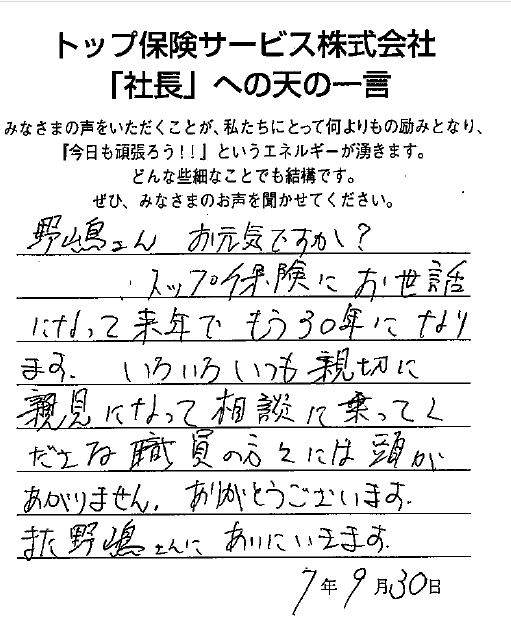 トップ保険サービス株式会社
「社長」への天の一言
みなさまの声をいただくことが、私たちにとって何よりもの励みとなり、
『今日も頑張ろう!!』というエネルギーが湧きます。
どんな些細なことでも結構です。
ぜひ、みなさまのお声を聞かせてください。
野嶋さん お元気ですか?
トップ保険にお世話
になって来年でもう30年になり
ます。いろいろいつも親切に
親見になって相談に乗ってく
ださる職員の方々には頭が
あがりません。ありがとうございます。
また野嶋さんにあいにいきます。
7年9月30日